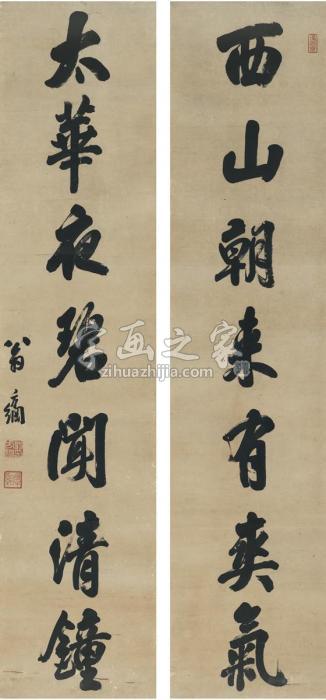 西山朝来有爽氣
太華夜碧聞清鐘
翁
字画之家
zihuazhijia.com